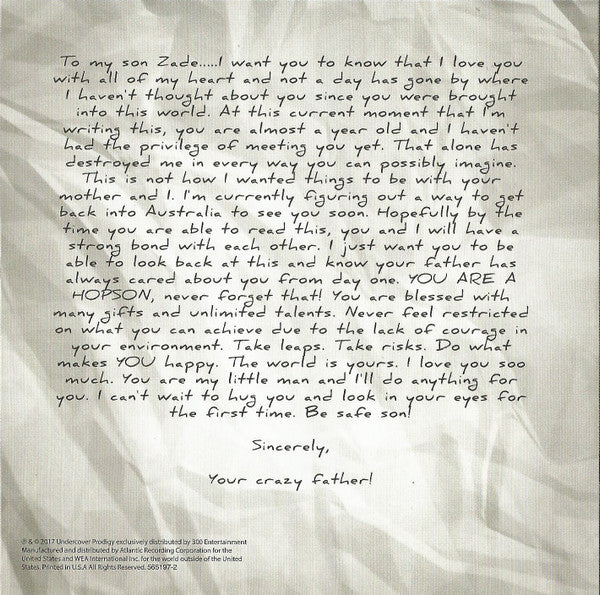 To my son Zade.....I want you to know that I love you
with all of my heart and not a day has gone by where
I haven't thought about you since you were brought
into this world. At this current moment that I'm
writing this, you are almost a year old and I haven't
had the privilege of meeting you yet. That alone has
destroyed me in every way you can possibly imagine.
This is not how I wanted things to be with your
mother and I. I'm currently figuring out a way to get
back into Australia to see you soon. Hopefully by the
time you are able to read this, you and I will have a
strong bond with each other. I just want you to be
able to look back at this and know your father has
always cared about you from day one. YOU ARE A
HOPSON, never forget that! You are blessed with
many gifts and unlimited talents. Never feel restricted
on what you can achieve due to the lack of courage in
your environment. Take leaps. Take risks. Do what
makes YOU happy. The world is yours. I love you soo
much. You are my little man and I'll do anything for
you. I can't wait to hug you and look in your eyes for
the first time. Be safe son!
Sincerely,
Your crazy father!
℗ & © 2017 Undercover Prodigy exclusively distributed by 300 Entertainment
Manufactured and distributed by Atlantic Recording Corporation for the
United States and WEA International Inc. for the world outside of the United
States. Printed in U.S.A All Rights Reserved. 565197-2